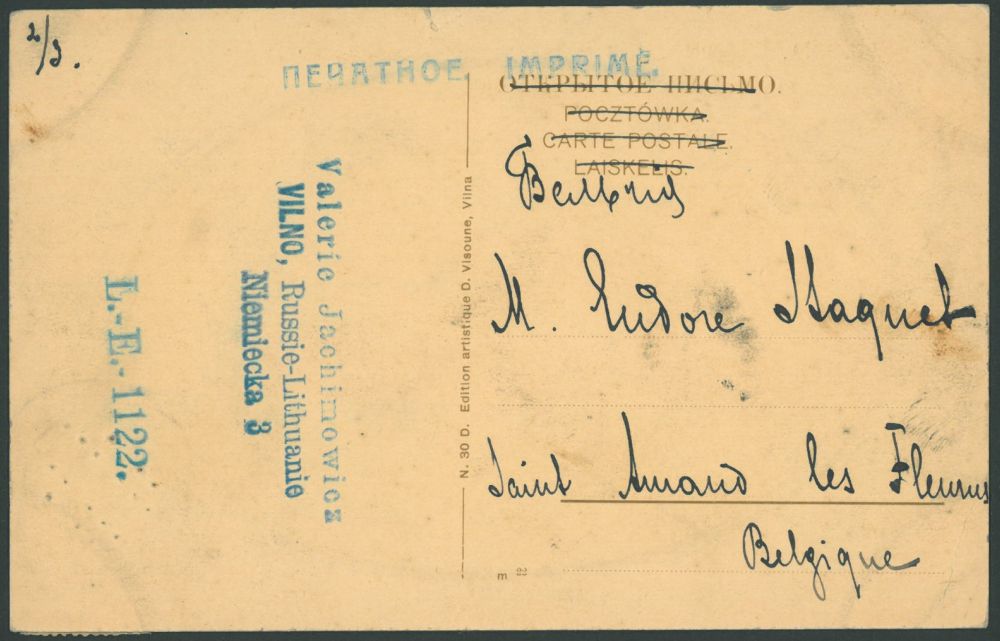 2/3.
ПЕЧАТНОЕ IMPRIMÉ.
ОТКРЫТОЕ ПИСЬМО.
POCZTÓWKA.
CARTE POSTALE.
LAISKELIS.
M. Eudore Staquet
Saint Amand les Fleurus
Belgique
N. 30 D. Edition artistique D. Visoune, Vilna
Valerie Jachimowicz
VILNO, Russie-Lithuanie
Niemiecka 3
L.-E.-1122.
m